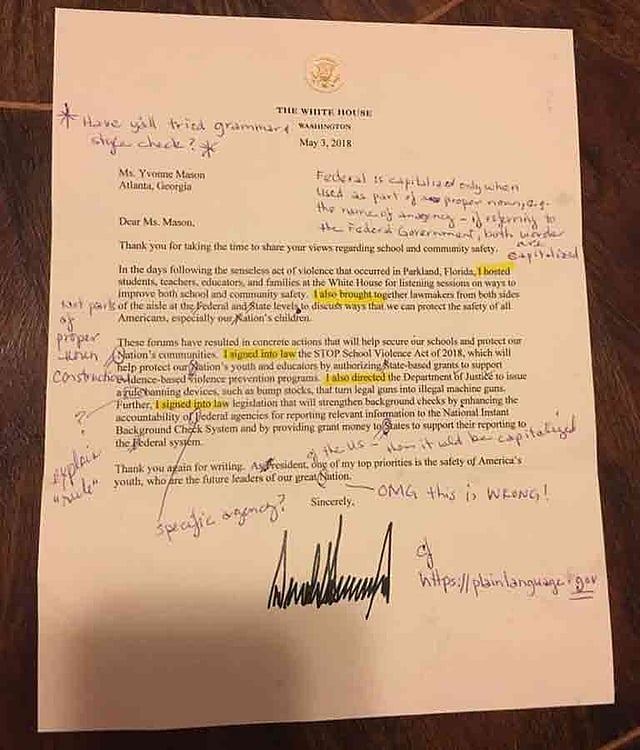 THE WHITE HOUSE
WASHINGTON
May 3, 2018
* Have y'all tried grammar &
style check? *
Ms. Yvonne Mason
Atlanta, Georgia
Federal is capitalized only when
used as part of a proper noun, e.g.
the name of an agency - if referring to
the Federal Government, both words
are
capitalized
Dear Ms. Mason,
Thank you for taking the time to share your views regarding school and community safety.
In the days following the senseless act of violence that occurred in Parkland, Florida, I hosted
students, teachers, educators, and families at the White House for listening sessions on ways to
improve both school and community safety. I also brought together lawmakers from both sides
of the aisle at the Federal and State levels to discuss ways that we can protect the safety of all
Americans, especially our Nation's children.
Not part
of
proper
noun
construction
These forums have resulted in concrete actions that will help secure our schools and protect our
Nation's communities. I signed into law the STOP School Violence Act of 2018, which will
help protect our Nation's youth and educators by authorizing State-based grants to support
evidence-based violence prevention programs. I also directed the Department of Justice to issue
a rule banning devices, such as bump stocks, that turn legal guns into illegal machine guns.
Further, I signed into law legislation that will strengthen background checks by enhancing the
accountability of Federal agencies for reporting relevant information to the National Instant
Background Check System and by providing grant money to States to support their reporting to
the Federal system.
?
explain
"rule"
of the US - then it wld be capitalized
Thank you again for writing. As President, one of my top priorities is the safety of America's
youth, who are the future leaders of our great Nation.
OMG this is WRONG!
Sincerely,
specific agency?
cf
https://plainlanguage.gov